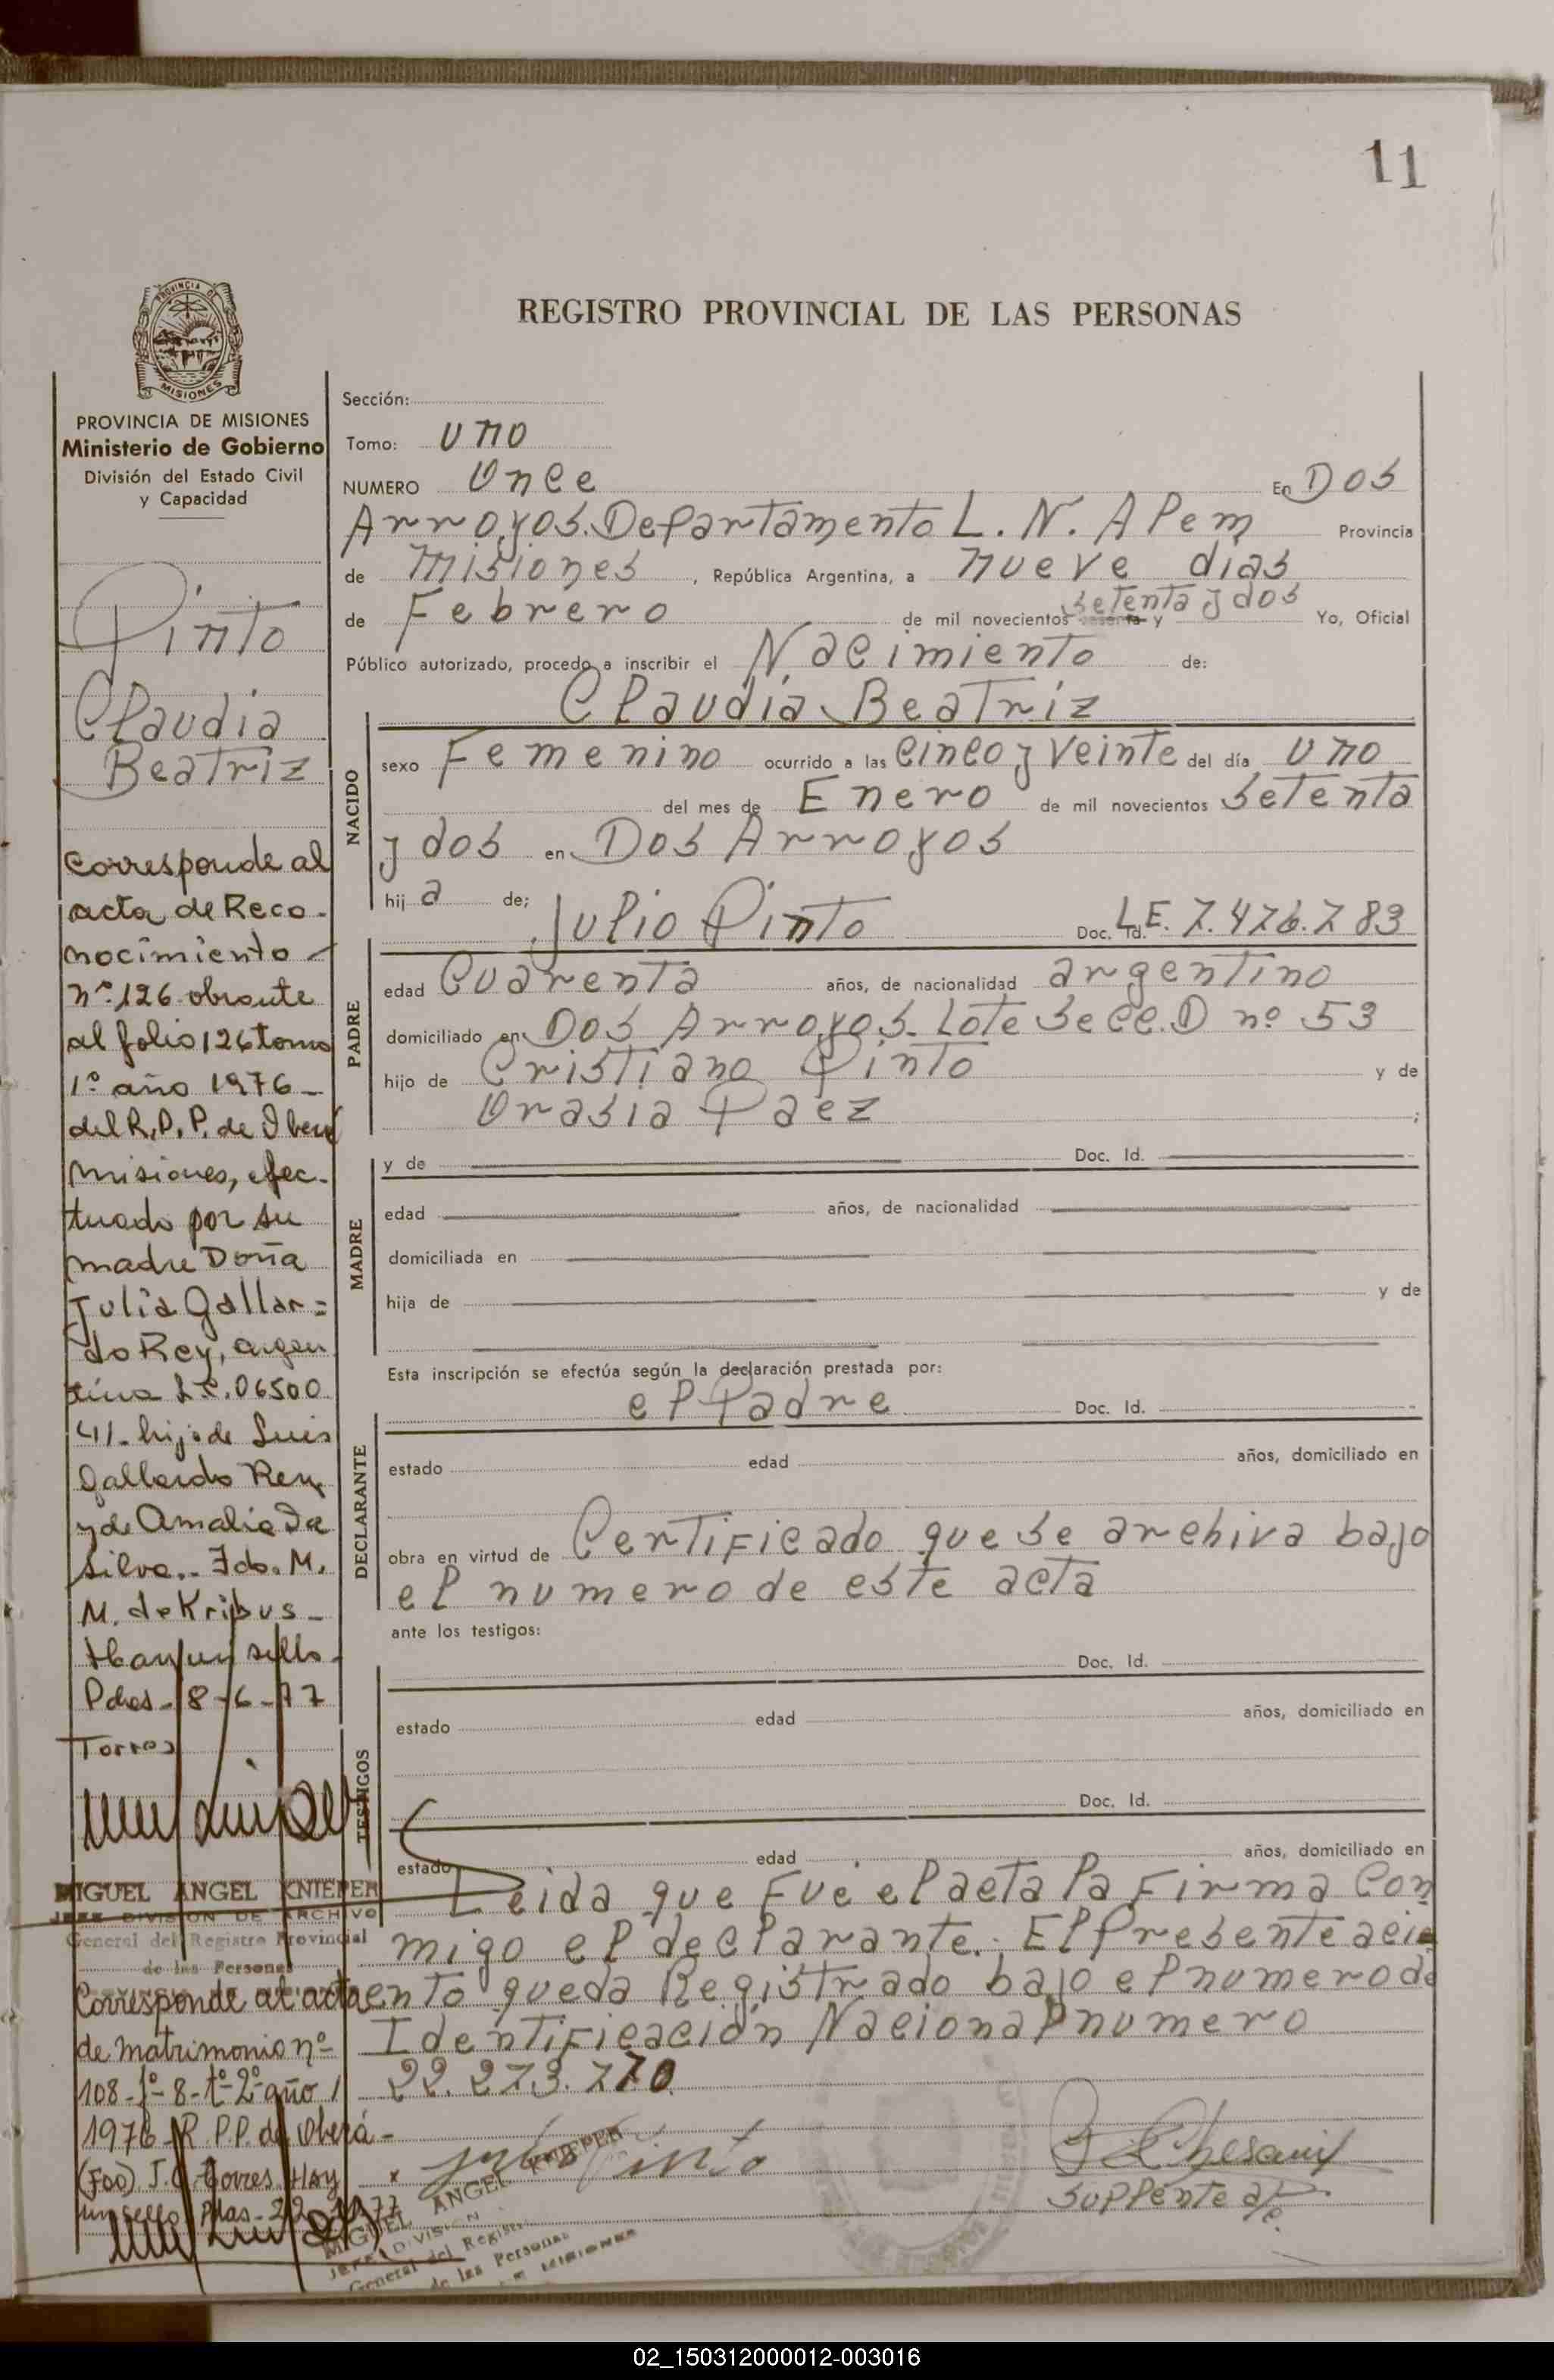 11
PROVINCIA DE
MISIONES
REGISTRO PROVINCIAL DE LAS PERSONAS
PROVINCIA DE MISIONES
Ministerio de Gobierno
División del Estado Civil
y Capacidad
Pinto
Claudia
Beatriz
Corresponde al
acta de Reco-
nocimiento
nº 126 obrante
al folio 126 tomo
1º año 1976-
del R.P.P. de
Misiones, efec-
tuado por su
madre Doña
Julia Gallar=
do Rey, argen
tina L.C. 06500
41- hija de Luis
Gallardo Rey
y de Amalia Da
Silva.- Fdo. M.
M. de Kribus-
Hay un sello-
Pdas- 8-6-77
Torres
MIGUEL ANGEL KNIEPER
JEFE DIVISION DE ARCHIVO
General del Registro Provincial
de las Personas
Corresponde al acta
de Matrimonio nº
108-fº-8-tº-2º-año
1976-R.P.P. de Oberá-
(Fdo) J. C. Torres. Hay
un sello Pdas-
Sección:
Tomo: uno
NUMERO Once En Dos
Arroyos. Departamento L. N. Alem Provincia
de Misiones, República Argentina, a nueve dias
de Febrero de mil novecientos sesenta y setenta y dos Yo, Oficial
Público autorizado, procedo a inscribir el Nacimiento de:
Claudia Beatriz
NACIDO
sexo Femenino ocurrido a las cinco y veinte del día uno
del mes de Enero de mil novecientos setenta
y dos en Dos Arroyos
hija de;
Julio Pinto Doc. Id. L.E. 7.476.783
PADRE
edad Cuarenta años, de nacionalidad argentino
domiciliado en Dos Arroyos. Lote Secc. D nº 53
hijo de Cristiano Pinto y de
Orasia Paez ;
MADRE
y de Doc. Id.
edad años, de nacionalidad
domiciliada en
hija de y de
Esta inscripción se efectúa según la declaración prestada por:
el Padre Doc. Id.
DECLARANTE
estado edad años, domiciliado en
obra en virtud de Certificado que se archiva bajo
el numero de este acta
ante los testigos:
Doc. Id.
TESTIGOS
estado edad años, domiciliado en
Doc. Id.
estado edad años, domiciliado en
Leida que fue el acta la firma con
migo el declarante.; El Presente
queda Registrado bajo el numero de
Identificación Nacional numero
22.273.770
Julio Pinto
Suplente
MIGUEL ANGEL KNIEPER
JEFE DIVISION
General del Registro
de las Personas
MISIONES
02_150312000012-003016